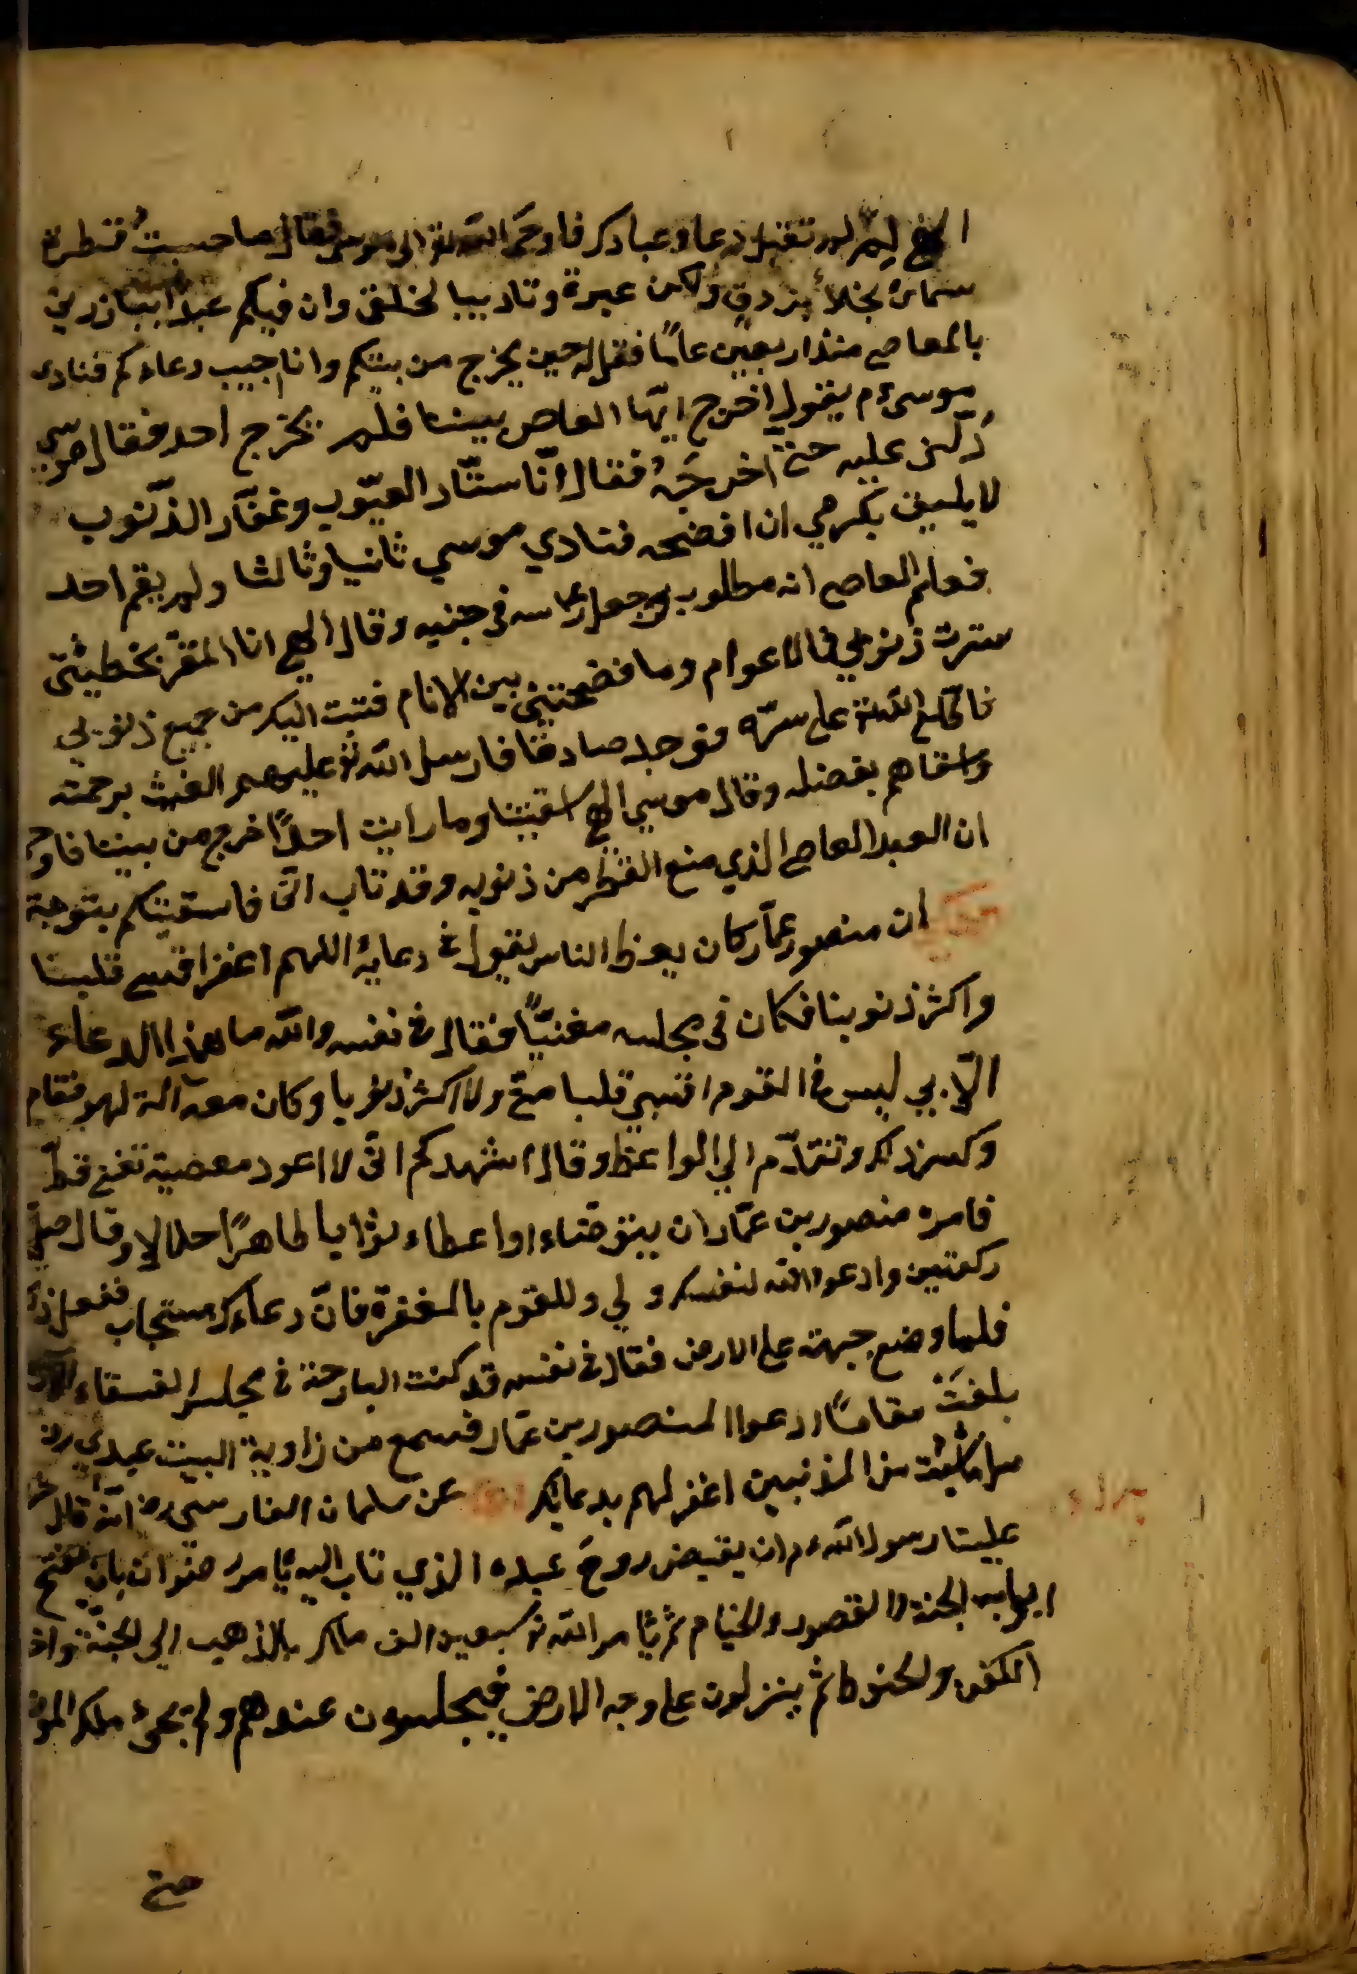 الهي لِمَ لم تقبل دعاء عبادك فاوحَى الله تع الى موسى فقال ما حبستُ قطرة
سمائى بخلاً برزقٍ ولكن عبرة وتاديبا لخلقى وان فيكم عبدا يبارزني
بالمعاصي منذ اربعين عامًا فقل له حين يخرج من بينكم وانا اجيب دعاءكم فنادى
موسى ءم يقول اخرج ايّها العاصي بيننا فلم يخرج احد فقال موسى
دُلّنى عليه حتى اخرجَهُ فقال انّا ستّار العيّوب وغفّار الذّنوب
لا يليق بكرمي ان افضحه فنادي موسى ثانيا وثالثا ولم يقم احد
فعلم العاصي انه مطلوب وجعل راسه في جنبيه وقال الهي انا المقرّ بخطيئتى
سترت ذنوبي في الاعوام وما فضحتني بين الانام فتبت اليك من جميع ذنوبي
فاطّلع الله تع على سرّه فوجد صادقا فارسل الله تع عليهم الغيث برحمته
واسقاهم بفضله وقال موسى الهي اسقيتنا وما رايت احدًا خرج من بيننا فاوحى
ان العبد العاصي الذي منع القطر من ذنوبه وقد تاب الّى فاسقيتكم بتوبة
ان منصور عمّار كان يعظ الناس يقول في دعائه اللهم اغفر اقسى قلبنا
واكثر ذنوبنا فكان في مجلسه مغنيّاً فقال في نفسه والله ما هذا الدعاء
الّا بي ليس في القوم اقسى قلبا منّي ولا اكثر ذنوبا وكان معه آلة لهو فقام
وكسر ذلك وتقدّم الي الواعظ وقال اشهدكم انّى لا اعود معصية تغنى قطّ
فامره منصور بن عمّار ان يتوضّاء واعطاء ثوابا طاهرًا حلالا وقال صلّي
ركعتين وادعوا الله لنفسك ولي وللقوم بالمغفرة فانّ دعاءك مستجاب ففعل ذلك
فلما وضع جبهته على الارض فقال في نفسه قد كنت البارحة في مجلس الفسقاء الآن
بلغتَ مقامًا ادعوا المنصور بن عمّار فسمع من زاوية البيت عبدي
من شئت من المذنبين اغفر لهم بدعائك عن سلمان الفارسي رض انّه قال
علينا رسول الله ءم ان يقبض روحَ عبده الذي تاب اليه يامر رضوان بان يفتح
ابواب الجنة والقصور والخيام ثم يامر الله تع سبعين الف ملك بالذهب الي الجنة
الكفن والحنوط ثم ينزلون على وجه الارض فيجلسون عندهم ولم يجئ ملك الموت
حتى